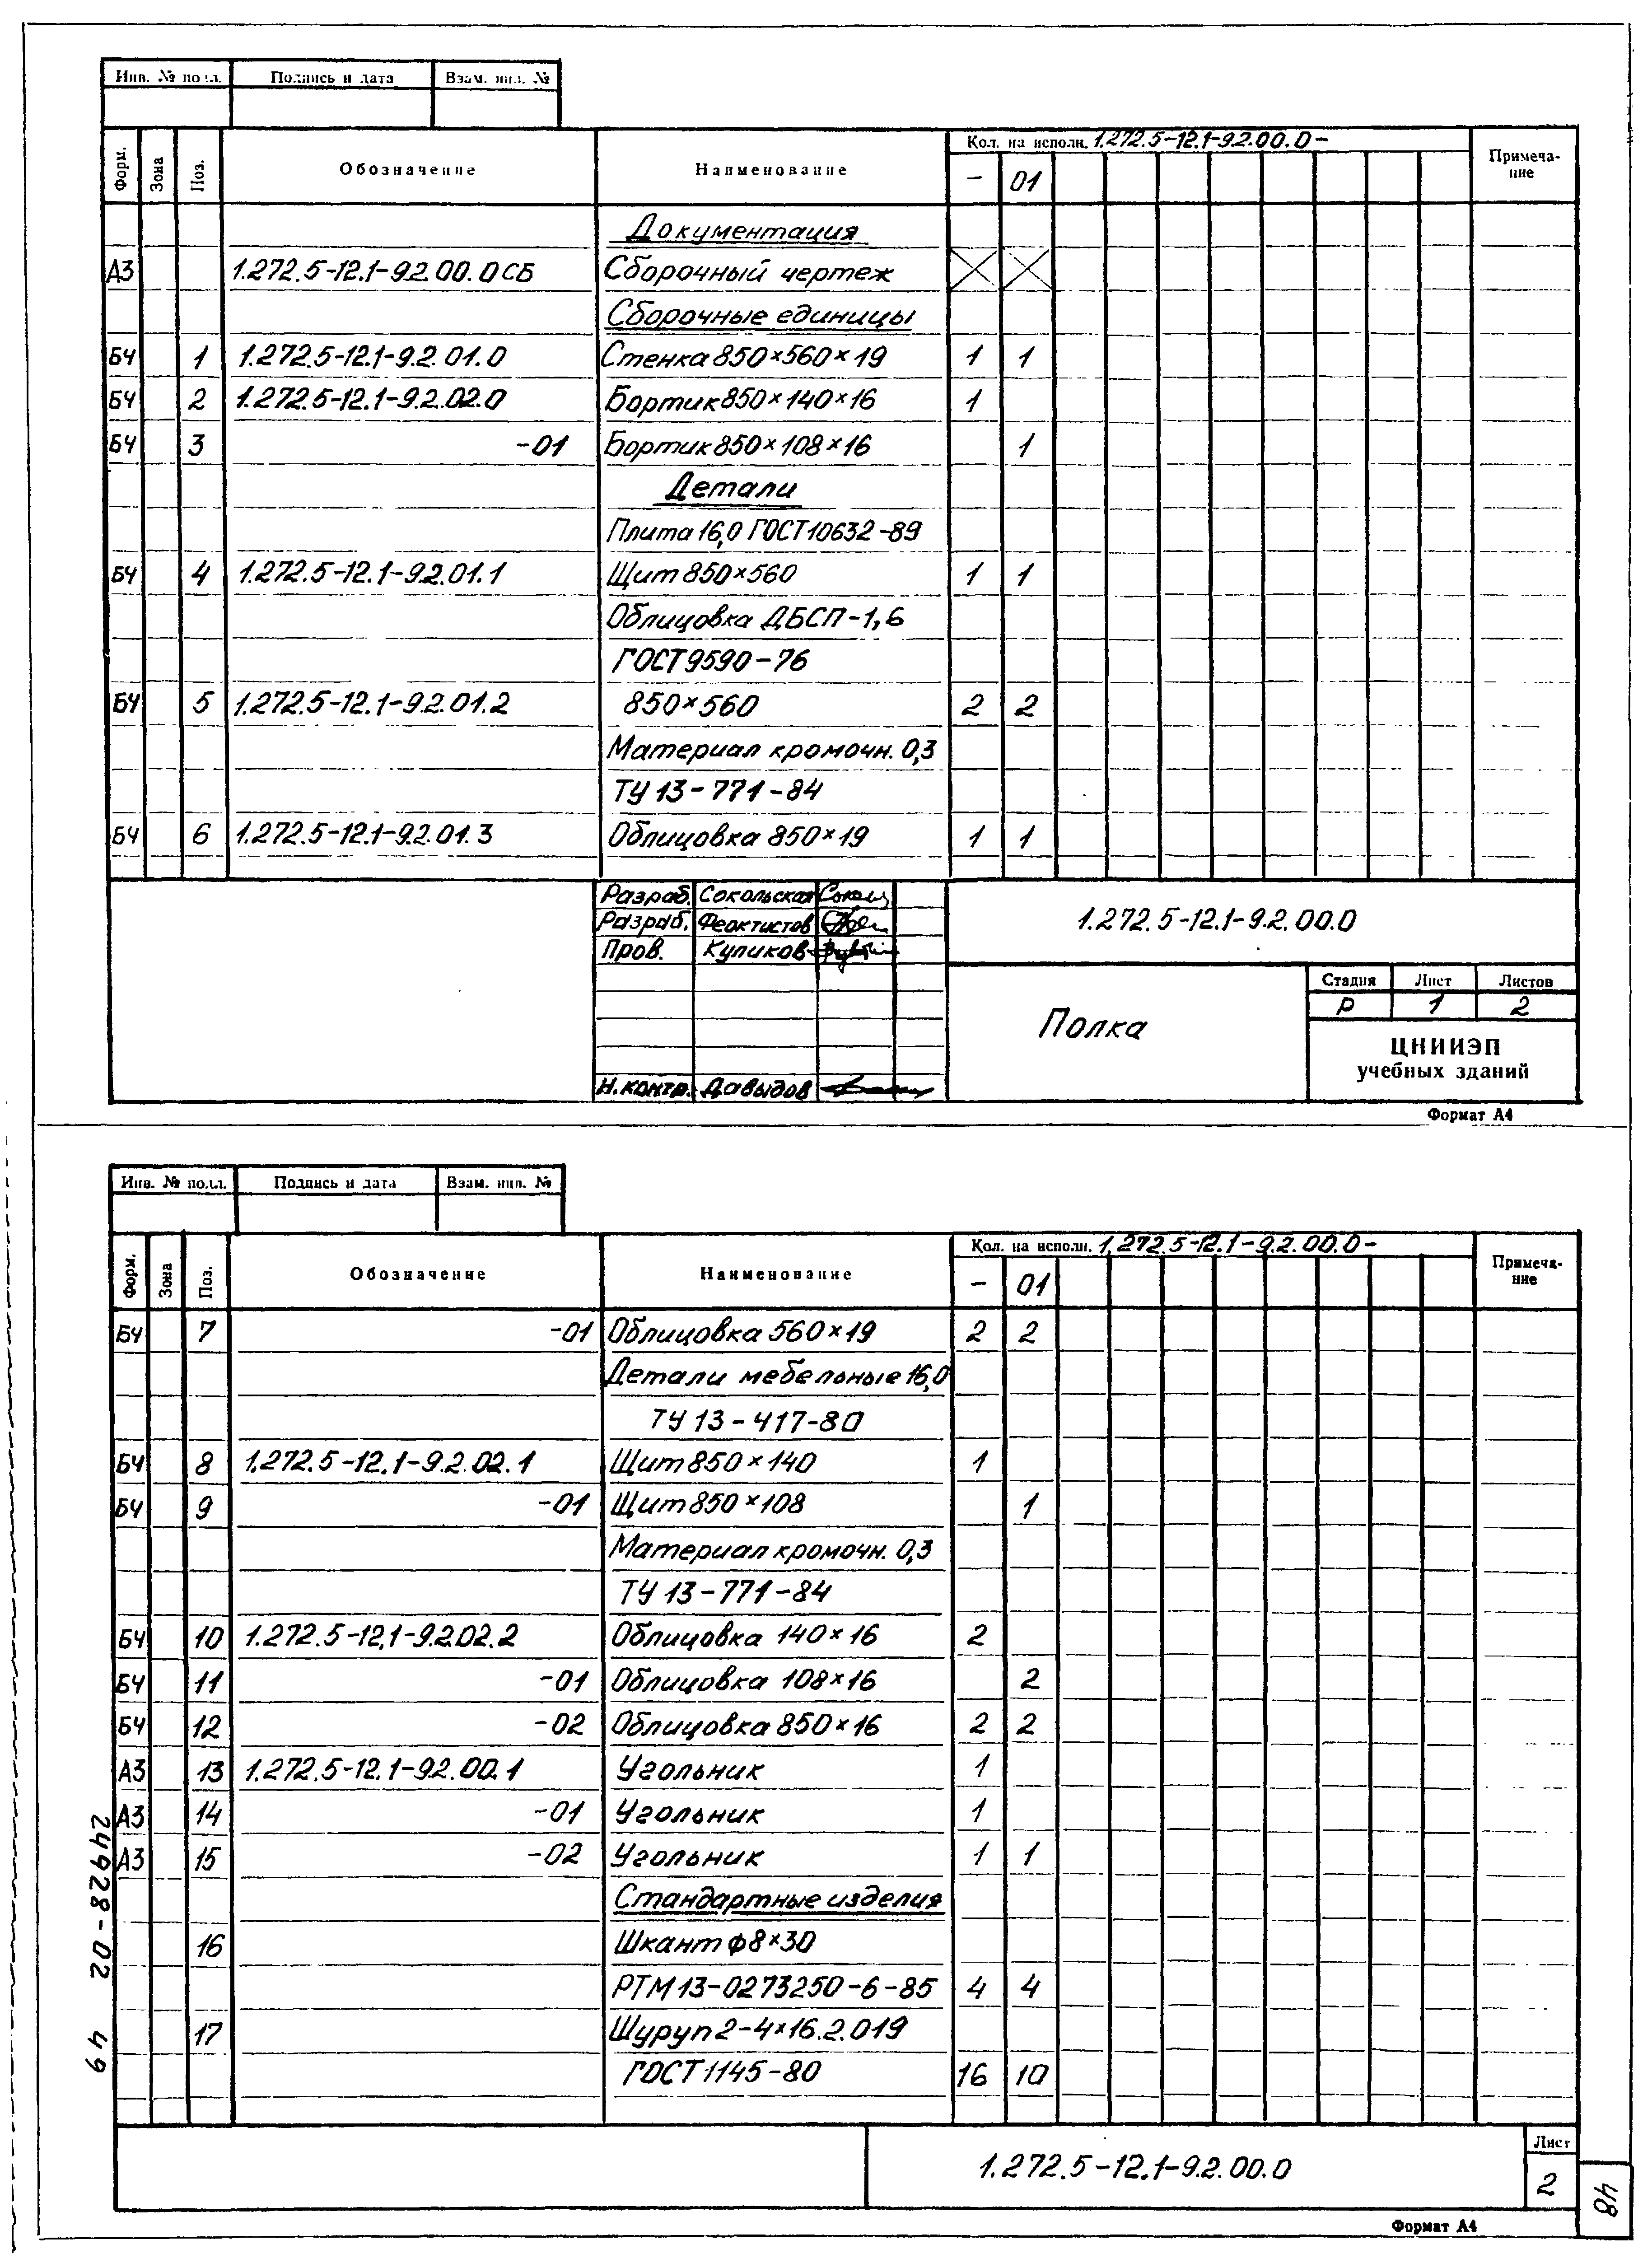 Инв. № подл. Подпись и дата Взам. инв. №
Форм. Зона Поз. Обозначение Наименование Кол. на исполн. 1.272.5-12.1-9.2.00.0- Примеча-
ние
- 01
Документация
А3 1.272.5-12.1-9.2.00.0СБ Сборочный чертеж
Сборочные единицы
БЧ 1 1.272.5-12.1-9.2.01.0 Стенка 850×560×19 1 1
БЧ 2 1.272.5-12.1-9.2.02.0 Бортик 850×140×16 1
БЧ 3 -01 Бортик 850×108×16 1
Детали
Плита 16,0 ГОСТ 10632-89
БЧ 4 1.272.5-12.1-9.2.01.1 Щит 850×560 1 1
Облицовка ДБСП-1,6
ГОСТ 9590-76
БЧ 5 1.272.5-12.1-9.2.01.2 850×560 2 2
Материал кромочн. 0,3
ТУ 13-771-84
БЧ 6 1.272.5-12.1-9.2.01.3 Облицовка 850×19 1 1
Разраб. Сокольская
Разраб. Феоктистов
Пров. Куликов
Н.контр. Давыдов
1.272.5-12.1-9.2.00.0
Полка
Стадия Лист Листов
Р 1 2
ЦНИИЭП
учебных зданий
Формат А4
Инв. № подл. Подпись и дата Взам. инв. №
Форм. Зона Поз. Обозначение Наименование Кол. на исполн. 1.272.5-12.1-9.2.00.0- Примеча-
ние
- 01
БЧ 7 -01 Облицовка 560×19 2 2
Детали мебельные 16,0
ТУ 13-417-80
БЧ 8 1.272.5-12.1-9.2.02.1 Щит 850×140 1
БЧ 9 -01 Щит 850×108 1
Материал кромочн. 0,3
ТУ 13-771-84
БЧ 10 1.272.5-12.1-9.2.02.2 Облицовка 140×16 2
БЧ 11 -01 Облицовка 108×16 2
БЧ 12 -02 Облицовка 850×16 2 2
А3 13 1.272.5-12.1-9.2.00.1 Угольник 1
А3 14 -01 Угольник 1
А3 15 -02 Угольник 1 1
Стандартные изделия
16 Шкант ф8×30
РТМ 13-0273250-6-85 4 4
17 Шуруп 2-4×16.2.019
ГОСТ 1145-80 16 10
1.272.5-12.1-9.2.00.0
Лист
2
Формат А4
24928-02 49
48